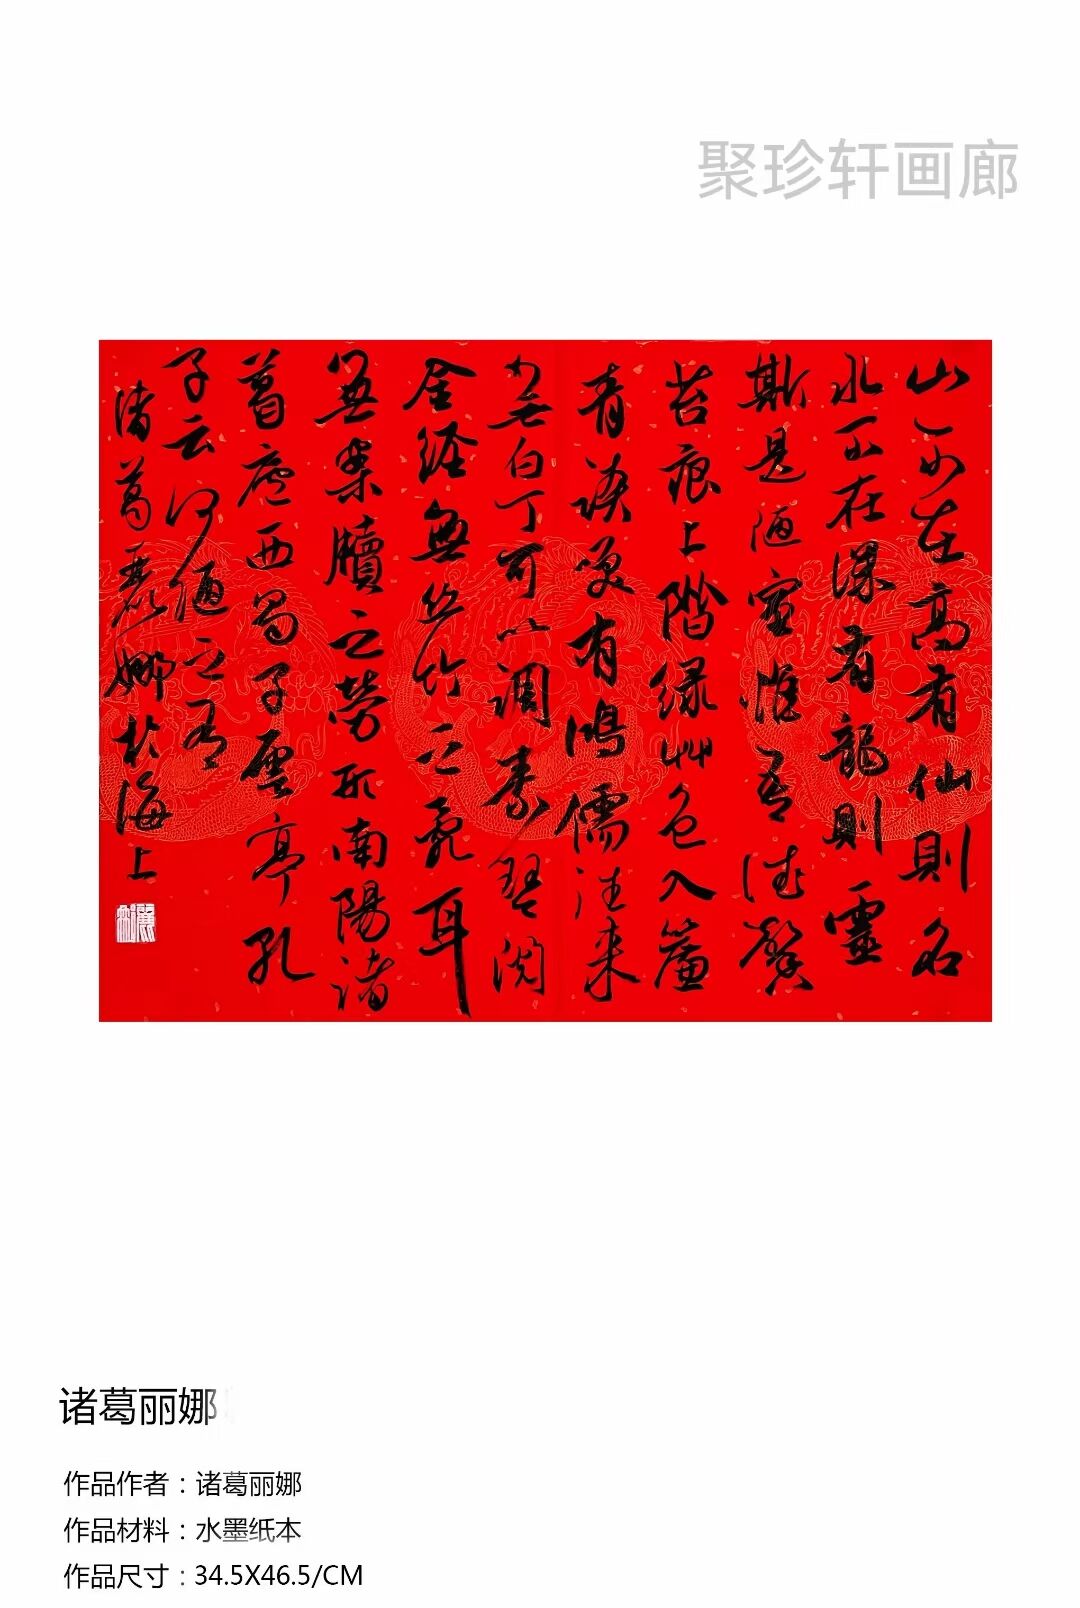 聚珍轩画廊
山不在高有仙則名
水不在深有龍則靈
斯是陋室惟吾德馨
苔痕上階緑艸色入簾
青談笑有鴻儒往来
无白丁可以調素琴閲
金経無丝竹之乱耳
無案牘之勞形南陽诸
葛廬西蜀子雲亭孔
子云何陋之有
诸葛麗娜於海上
诸葛丽娜
作品作者：诸葛丽娜
作品材料：水墨纸本
作品尺寸：34.5X46.5/CM